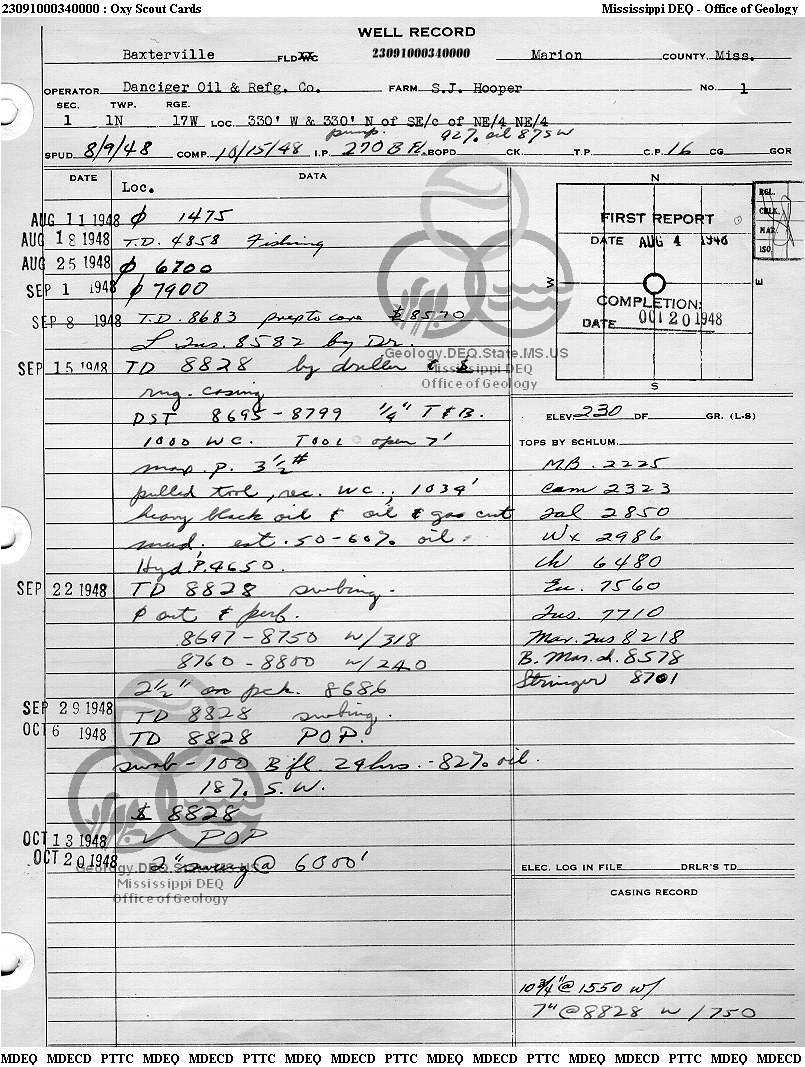 23091000340000 : Oxy Scout Cards Mississippi DEQ - Office of Geology
WELL RECORD
Baxterville FLD 23091000340000 Marion COUNTY, Miss.
OPERATOR Danciger Oil & Refg. Co. FARM S.J. Hooper No. 1
SEC. TWP. RGE.
1 1N 17W LOC. 330' W & 330' N of SE/c of NE/4 NE/4
pump. 92% oil 8% SW
SPUD 8/9/48 COMP. 10/15/48 I.P. 270 B FL. BOPD CK. T.P. C.P. 16 CG GOR
DATE DATA
Loc.
AUG 11 1948 ϕ 1475
AUG 18 1948 T.D. 4858 Fishing
AUG 25 1948 ϕ 6700
SEP 1 1948 ϕ 7900
SEP 8 1948 T.D. 8683 prep to core $ 8570
L Tus. 8582 by Dr.
SEP 15 1948 TD 8828 by driller & $
rng. casing
DST 8695-8799 1/4" T & B.
1000 WC. TOOL open 7'
max. p. 3 1/2 #
pulled tool, rec. WC., 1039'
heavy black oil & oil & gas cut
mud, est. 50-60% oil.
Hyd. P. 4650.
SEP 22 1948 TD 8828 swbing.
ϕ out & perf.
8697-8750 w/318
8760-8800 w/240
2 1/2" on pck. 8686
SEP 29 1948 TD 8828 swbing.
OCT 6 1948 TD 8828 POP.
swab - 100 B fl. 24 hrs. - 82% oil.
18% S.W.
$ 8828
OCT 13 1948 ✓ POP
OCT 20 1948 2" swung @ 6000'
N
W
E
S
FIRST REPORT
DATE AUG 4 1948
COMPLETION:
DATE OCT 20 1948
RGL.
CHLK.
MAP.
ISO.
ELEV 230 DF. GR. (L-S)
TOPS BY SCHLUM.
M.B. 2225
Cam 2323
Jal 2850
Wx 2986
Ch 6480
Eu. 7560
Tus. 7710
Mar. Tus 8218
B. Mar. sh. 8578
Stringer 8701
ELEC. LOG IN FILE DRLR'S TD
CASING RECORD
10 3/4" @ 1550 w/
7" @ 8828 w/750
Geology.DEQ.State.MS.US
Mississippi DEQ
Office of Geology
Geology.DEQ.State.MS.US
Mississippi DEQ
Office of Geology
MDEQ MDECD PTTC MDEQ MDECD PTTC MDEQ MDECD PTTC MDEQ MDECD PTTC MDEQ MDECD PTTC MDEQ MDECD PTTC MDEQ